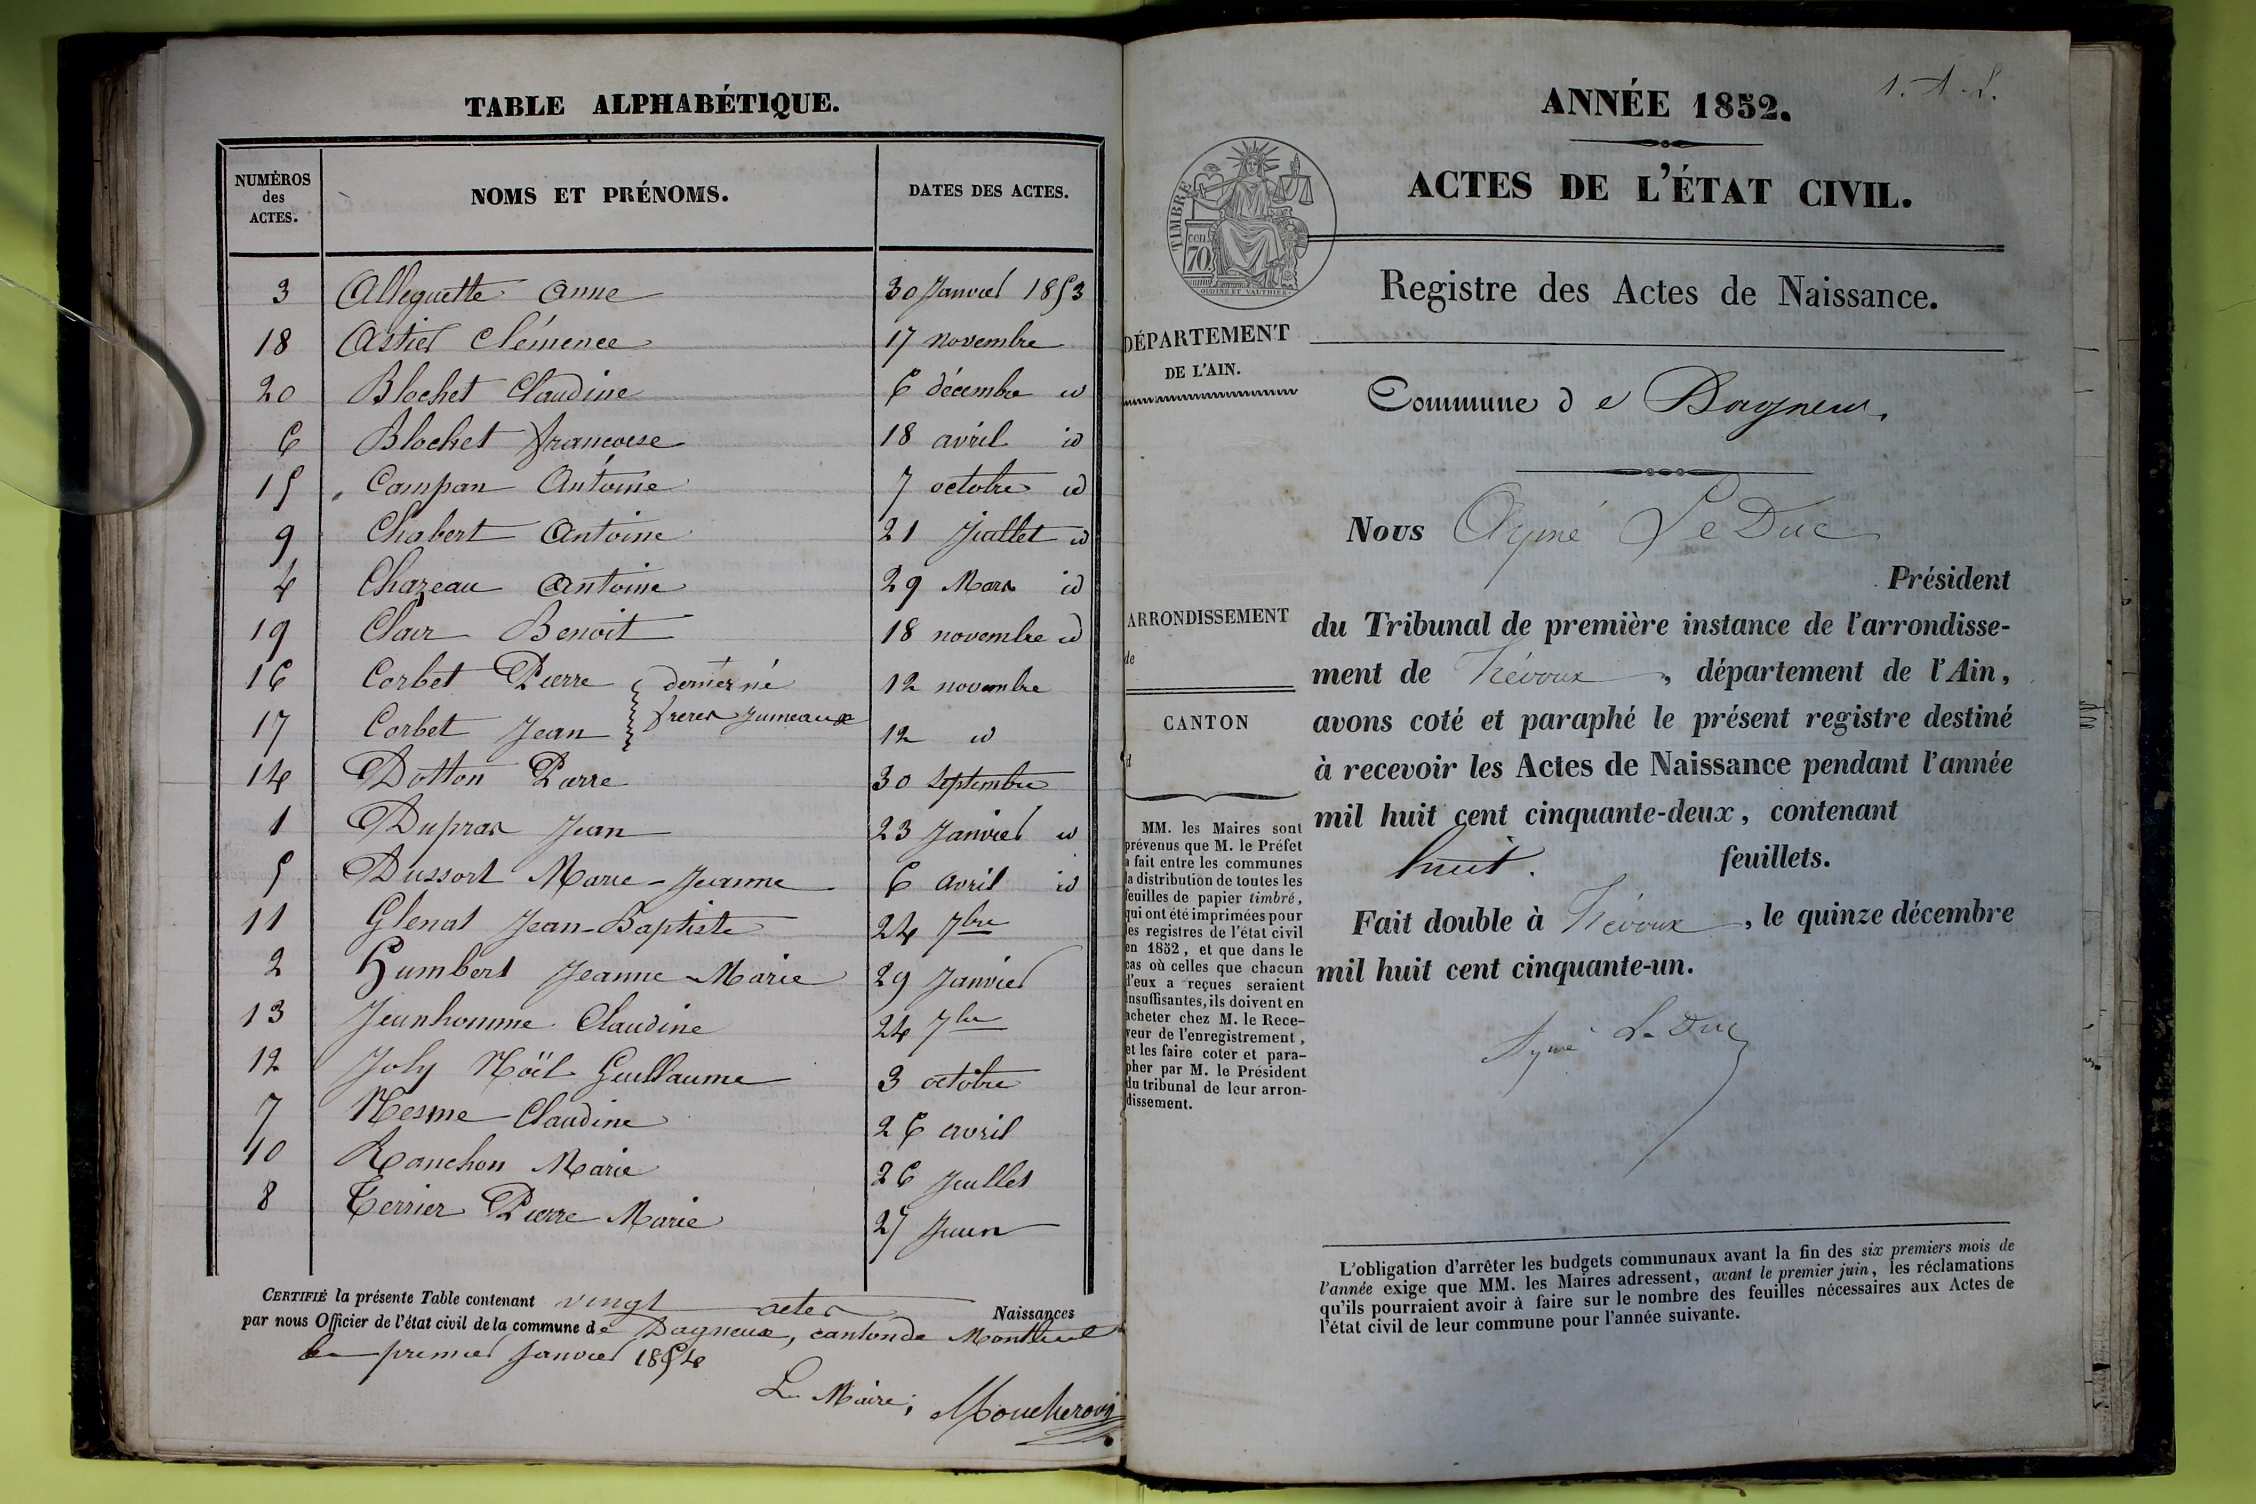 TABLE ALPHABÉTIQUE.
NUMÉROS des ACTES. NOMS ET PRÉNOMS. DATES DES ACTES.
3 Alleguette Anne 30 Janvier 1853
18 Astier Clémence 17 novembre
20 Blochet Claudine 6 décembre id
6 Blochet françoise 18 avril id
15 Campan Antoine 7 octobre id
9 Chabert Antoine 21 Juillet id
4 Chazeau Antoine 29 Mars id
19 Clair Benoit 18 novembre id
16 Corbet Pierre dernier né 12 novembre
17 Corbet Jean freres Jumeaux 12 id
14 Dotton Pierre 30 Septembre
1 Dupras Jean 23 Janvier id
5 Dussort Marie-Jeanne 6 avril id
11 Glenat Jean-Baptiste 24 7bre
2 Humbert Jeanne-Marie 29 Janvier
13 Jeunhomme Claudine 24 7bre
12 Joly Noël Guillaume 3 octobre
7 Nesme Claudine 26 avril
10 Ranchon Marie 26 Juillet
8 Terrier Pierre Marie 27 Juin
CERTIFIÉ la présente Table contenant vingt actes Naissances
par nous Officier de l'état civil de la commune de Dagneux, canton de Montluel
le premier Janvier 1854
Le Maire,
1. A. L.
ANNÉE 1852.
ACTES DE L'ÉTAT CIVIL.
TIMBRE
70
OUDINÉ ET VAUTHIER
Registre des Actes de Naissance.
DÉPARTEMENT
DE L'AIN.
Commune de Dagneux
Nous Aymé Le Duc
Président
ARRONDISSEMENT
de
CANTON
d
du Tribunal de première instance de l'arrondisse-
ment de Trévoux, département de l'Ain,
avons coté et paraphé le présent registre destiné
à recevoir les Actes de Naissance pendant l'année
mil huit cent cinquante-deux, contenant
huit. feuillets.
Fait double à Trévoux, le quinze décembre
mil huit cent cinquante-un.
Aymé Le Duc
MM. les Maires sont
prévenus que M. le Préfet
a fait entre les communes
la distribution de toutes les
feuilles de papier timbré,
qui ont été imprimées pour
les registres de l'état civil
en 1852, et que dans le
cas où celles que chacun
d'eux a reçues seraient
insuffisantes, ils doivent en
acheter chez M. le Rece-
veur de l'enregistrement,
et les faire coter et para-
pher par M. le Président
du tribunal de leur arron-
dissement.
L'obligation d'arrêter les budgets communaux avant la fin des six premiers mois de
l'année exige que MM. les Maires adressent, avant le premier juin, les réclamations
qu'ils pourraient avoir à faire sur le nombre des feuilles nécessaires aux Actes de
l'état civil de leur commune pour l'année suivante.